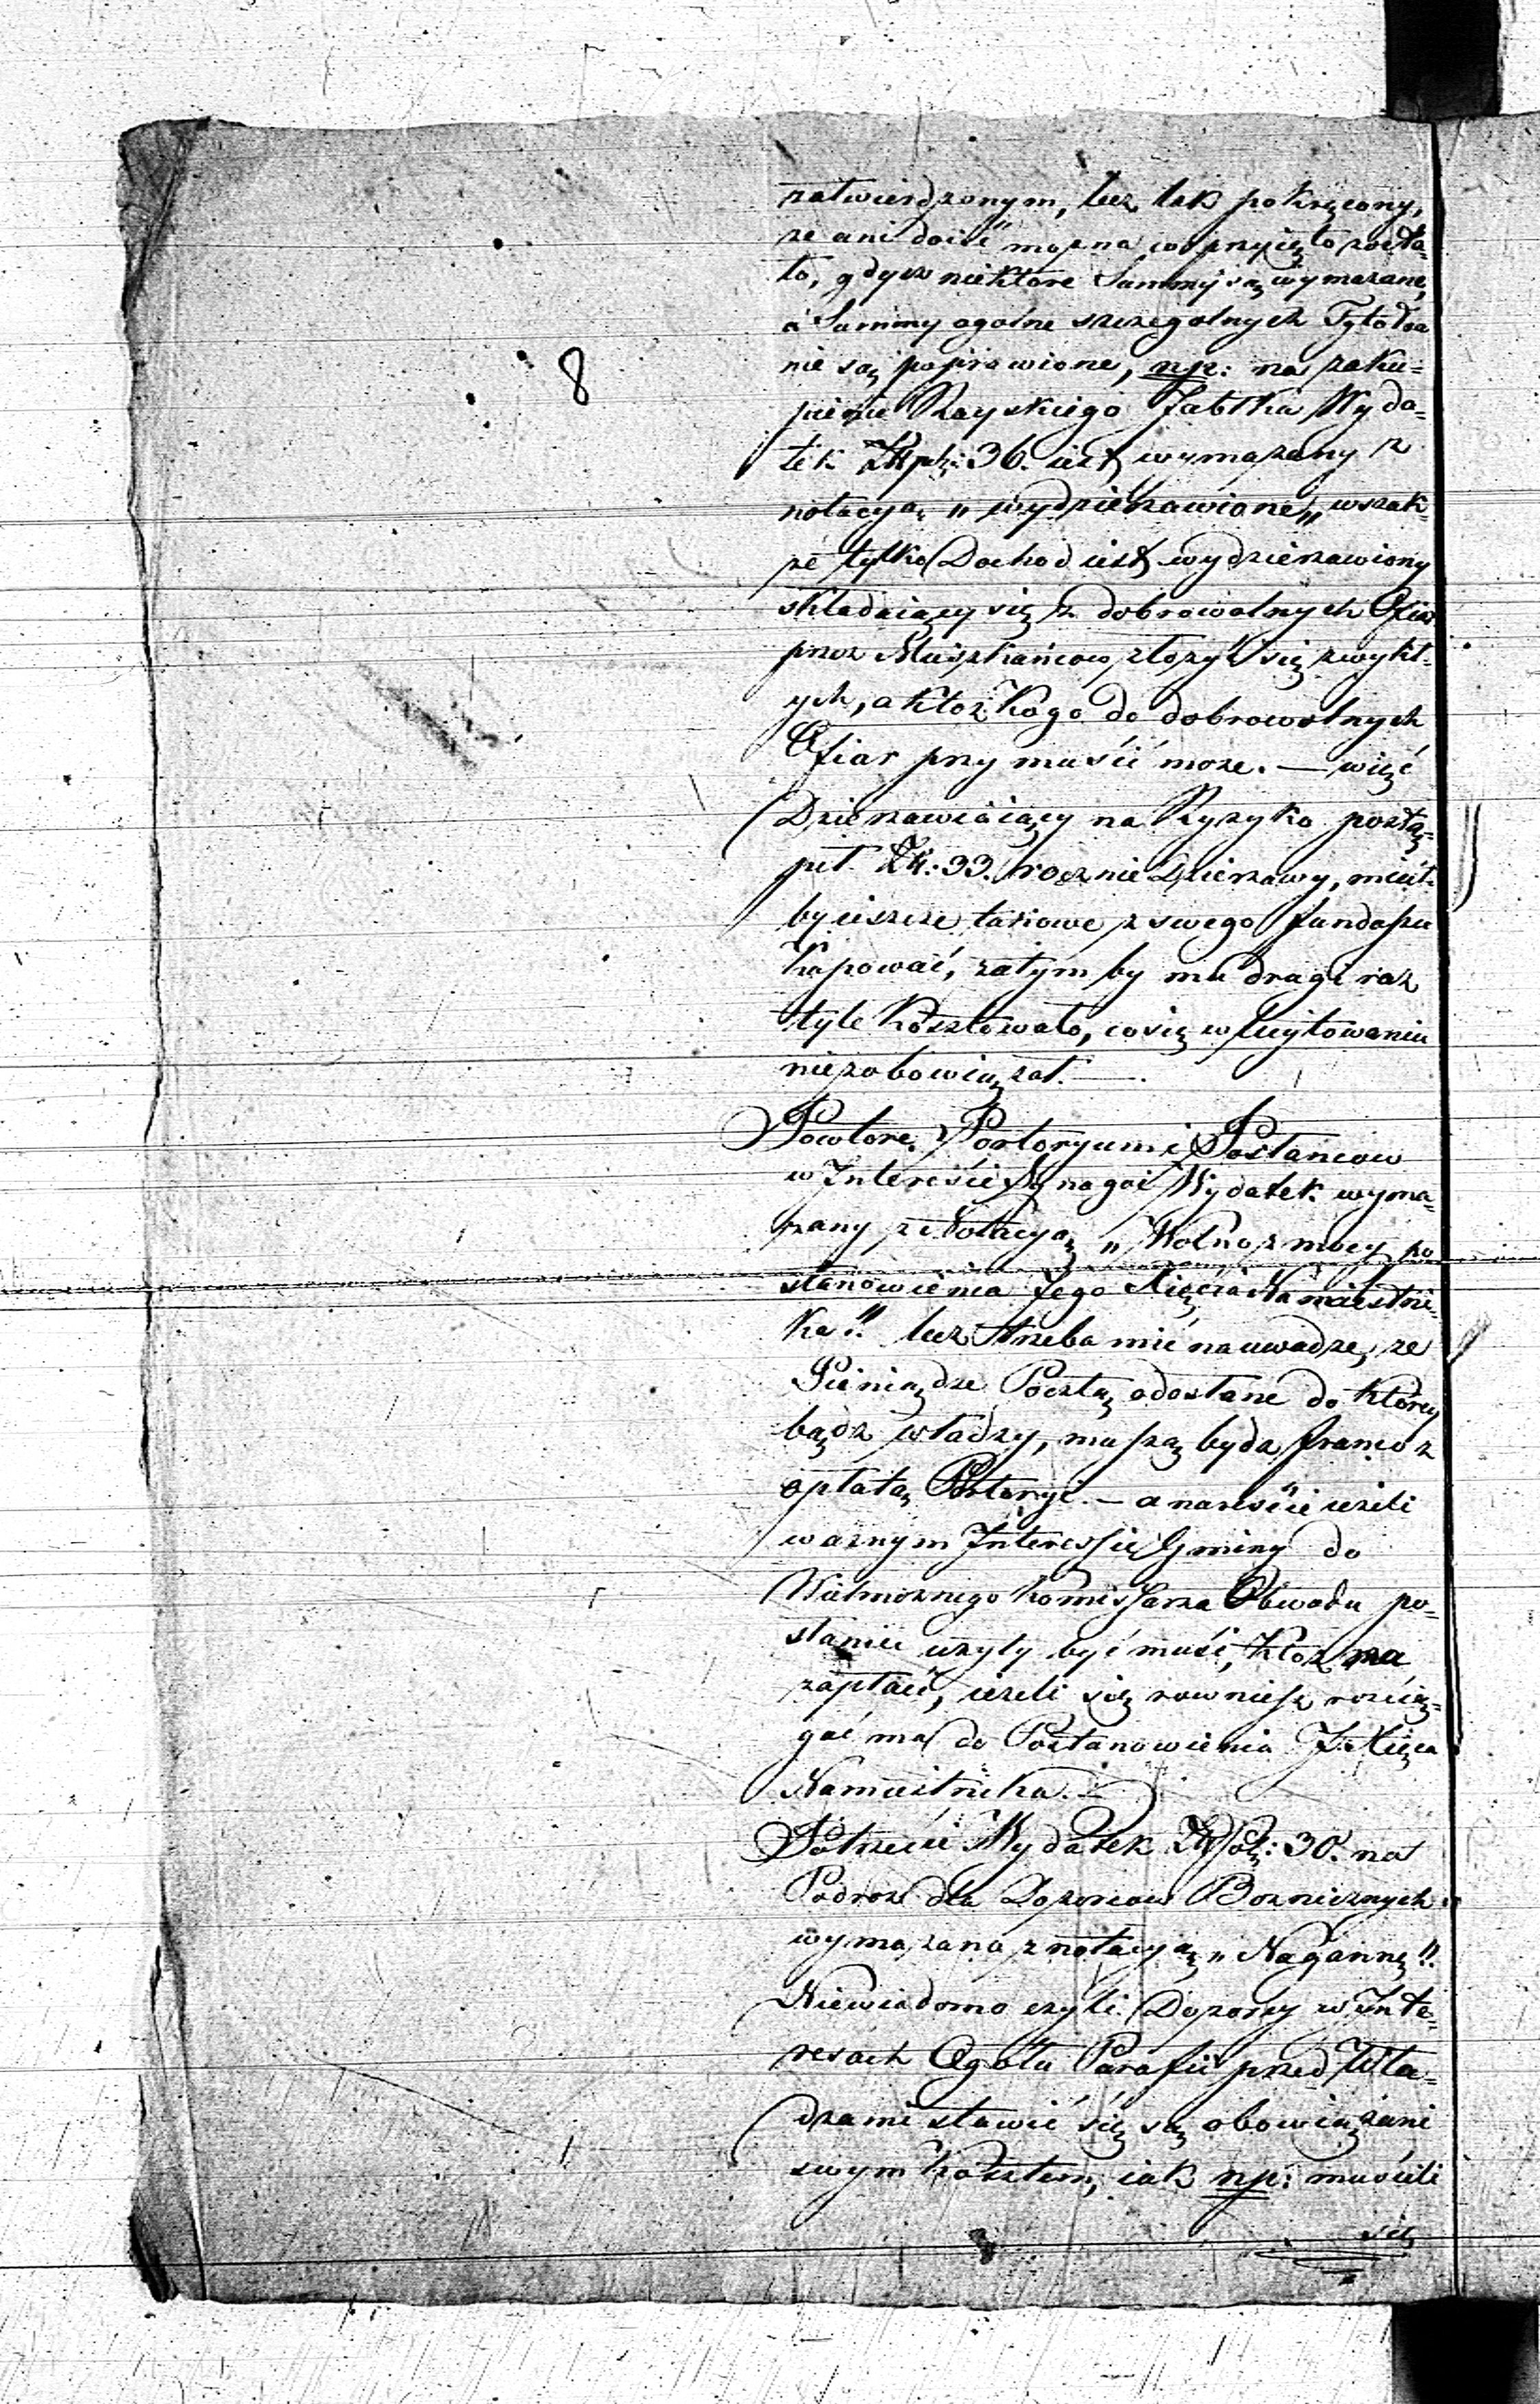 8
zatwierdzonym, lecz tak pokręcony,
ze ani doiść można co przyięto zosta-
ło, gdysz niektóre Summy są wymazane,
a Summy ogólne szczegolnych Tytołów
nie są poprawione, np: na zaku=
pienie Rayskiego Jabłka Wyda=
tek Złpol: 36. iest wymazany z
notacyą „wydzierzawione„ wszak-
że tylko Dochod iest wydzierzawiony
składaiący się z dobrowolnych Ofiar
przez Mieszkańcow złozyć się zwykł-
ych, a ktoż kogo do dobrowolnych
Ofiar przymusić moze. — więc
Dzierzawiaiący na Ryzyko postą=
pił Zł: 33. rocznie Dzierzawy, miał
by ieszcze takowe z swego fundaszu
kupować, zatym by mu drugi raz
tyle kosztowało, co się w licytowaniu
nie zobowiązał. —.
Powtore, Portoryum i Posłancow
w Interesie Synagogi Wydatek wyma=
zany z Notacyą „Wolno z mocy po
stanowienia Jego Xięcia Namiestni=
ka" lecz trzeba mić na uwadze, ze
Pieniądze Pocztą odesłane do ktorey
bądz władzy, muszą bydz franco z
opłatą Portoryi. — a nareście iezeli
w aznym Interessie Gminy do
Wielmoznego Komissarza Obwodu po=
słaniec uzyty być musi, ktoz ma
zapłacić, iezeli się rowniesz rozcią=
gać ma do Postanowienia J. Xięcia
Namiestnika. —
Potrzecie Wydatek Złpol: 30. na
Podroz dla Dozorcow Boznicznych
wymazana z notacyą „Nagannę".
Niewiadomo czyli Dozorcy w Inte=
resach Ogołu Parafii przed Wła=
dzami stawić się są obowiązani
swym kosztem, iak np: musieli
się